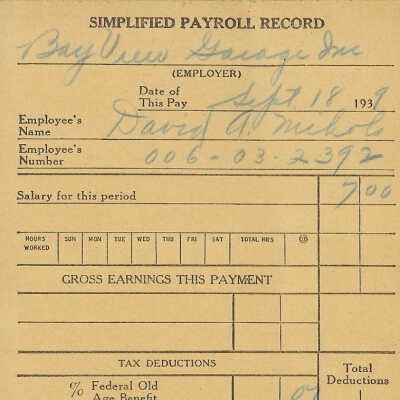 SIMPLIFIED PAYROLL RECORD
Bay View Garage Inc
(EMPLOYER)
Date of
This Pay Sept. 18 1939
Employee's
Name David A. Nichols
Employee's
Number 006-03-2392
Salary for this period 7 00
HOURS WORKED SUN MON TUE WED THU FRI SAT TOTAL HRS @
GROSS EARNINGS THIS PAYMENT
TAX DEDUCTIONS Total
Deductions
% Federal Old
Age Benefit 07